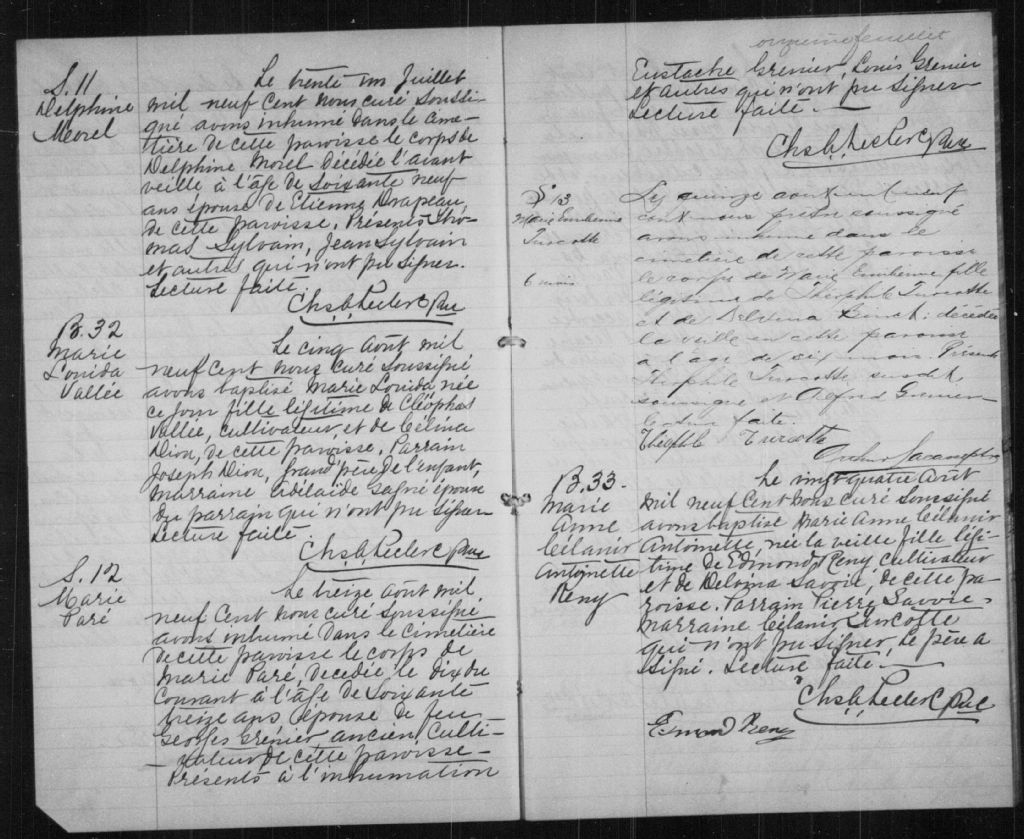 S. 11
Delphine
Morel
Le trente un Juillet
mil neuf Cent nous curé soussi-
gné avons inhumé dans le cime-
tière de cette paroisse le corps de
Delphine Morel décédée l'avant
veille à l'âge de soixante neuf
ans épouse de Etienne Drapeau,
de cette paroisse. Présents Tho-
mas Sylvain, Jean Sylvain
et autres qui n'ont pu signer.
Lecture faite.
Chs. A. Leclerc Ptre
B. 32
Marie
Lonida
Vallée
Le cinq août mil
neuf Cent nous curé soussigné
avons baptisé Marie Lonida, née
ce jour fille légitime de Cléophas
Vallée, cultivateur, et de Célina
Dion, de cette paroisse, Parrain
Joseph Dion, grand'père de l'enfant,
Marraine Adélaïde Gagné épouse
du parrain qui n'ont pu signer
Lecture faite.
Chs. A. Leclerc Ptre
S. 12
Marie
Paré
Le treize août mil
neuf Cent nous curé soussigné
avons inhumé dans le cimetière
de cette paroisse le corps de
Marie Paré, decedée le dix du
Courant à l'âge de soixante
treize ans épouse de feu
Georges Grenier ancien Culti-
-vateur de cette paroisse-
Présents à l'inhumation
onzième feuillet
Eustache Grenier, Louis Grenier
et autres qui n'ont pu signer
Lecture faite.
Chs. A. Leclerc Ptre
S 13
Marie Emilienne
Turcotte
6 mois
Le quinze août mil neuf
cent nous prêtre soussigné
avons inhumé dans le
cimetière de cette paroisse
le corps de Marie Emilienne fille
légitime de Théophile Turcotte
et de : décédée
la veille en cette paroisse
à l'âge de six mois. Présents
Théophile Turcotte, susdit,
soussigné et Alfred Grenier
Lecture faite.
Théophile Turcotte
B. 33.
Marie
Anne
Célanir
Antoinette
Reny
Le vingt quatre Août
mil neuf Cent nous curé soussigné
avons baptisé Marie Anne Célanir
Antoinette, née la veille fille légi-
time de Edmond Reny, cultivateur
et de Delvina Savoie, de cette pa-
roisse. Parrain Pierre Savoie-
Marraine Célanir Turcotte
qui n'ont pu signer, Le père a
signé. Lecture faite.
Chs. A. Leclerc Ptre
Edmond Reny